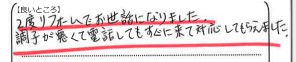 【良いところ】
2度リフォームでお世話になりました。
調子が悪くて電話してもすぐに来て対応してもらえました。